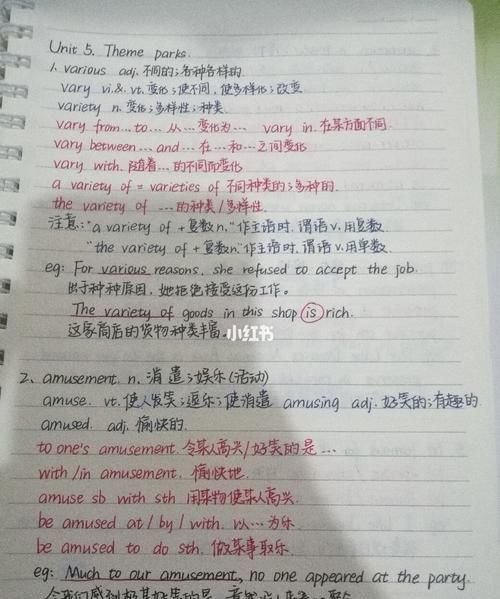 Unit 5. Theme parks.
1. various adj. 不同的;各种各样的.
vary vi.& vt. 变化;使不同,使多样化;改变
variety n. 变化;多样性;种类.
vary from...to... 从...变化为... vary in. 在某方面不同.
vary between...and... 在...和...之间变化
vary with. 随着...的不同而变化
a variety of = varieties of 不同种类的;多种的.
the variety of ...的种类/多样性.
注意:"a variety of +复数n."作主语时.谓语v.用复数
"the variety of +复数n."作主语时.谓语v.用单数.
eg: For various reasons, she refused to accept the job.
出于种种原因,她拒绝接受这份工作。
The variety of goods in this shop is rich.
这家商店的货物种类丰富.
小红书
2、amusement. n. 消遣;娱乐(活动)
amuse. vt. 使人发笑;逗乐;使消遣 amusing adj. 好笑的;有趣的
amused. adj. 愉快的.
to one's amusement. 令某人高兴/好笑的是...
with/in amusement. 愉快地.
amuse sb with sth 用某物使某人高兴.
be amused at/by/with. 以...为乐.
be amused to do sth. 做某事取乐.
eg: Much to our amusement, no one appeared at the party.
令我们感到极其好笑的是,竟然